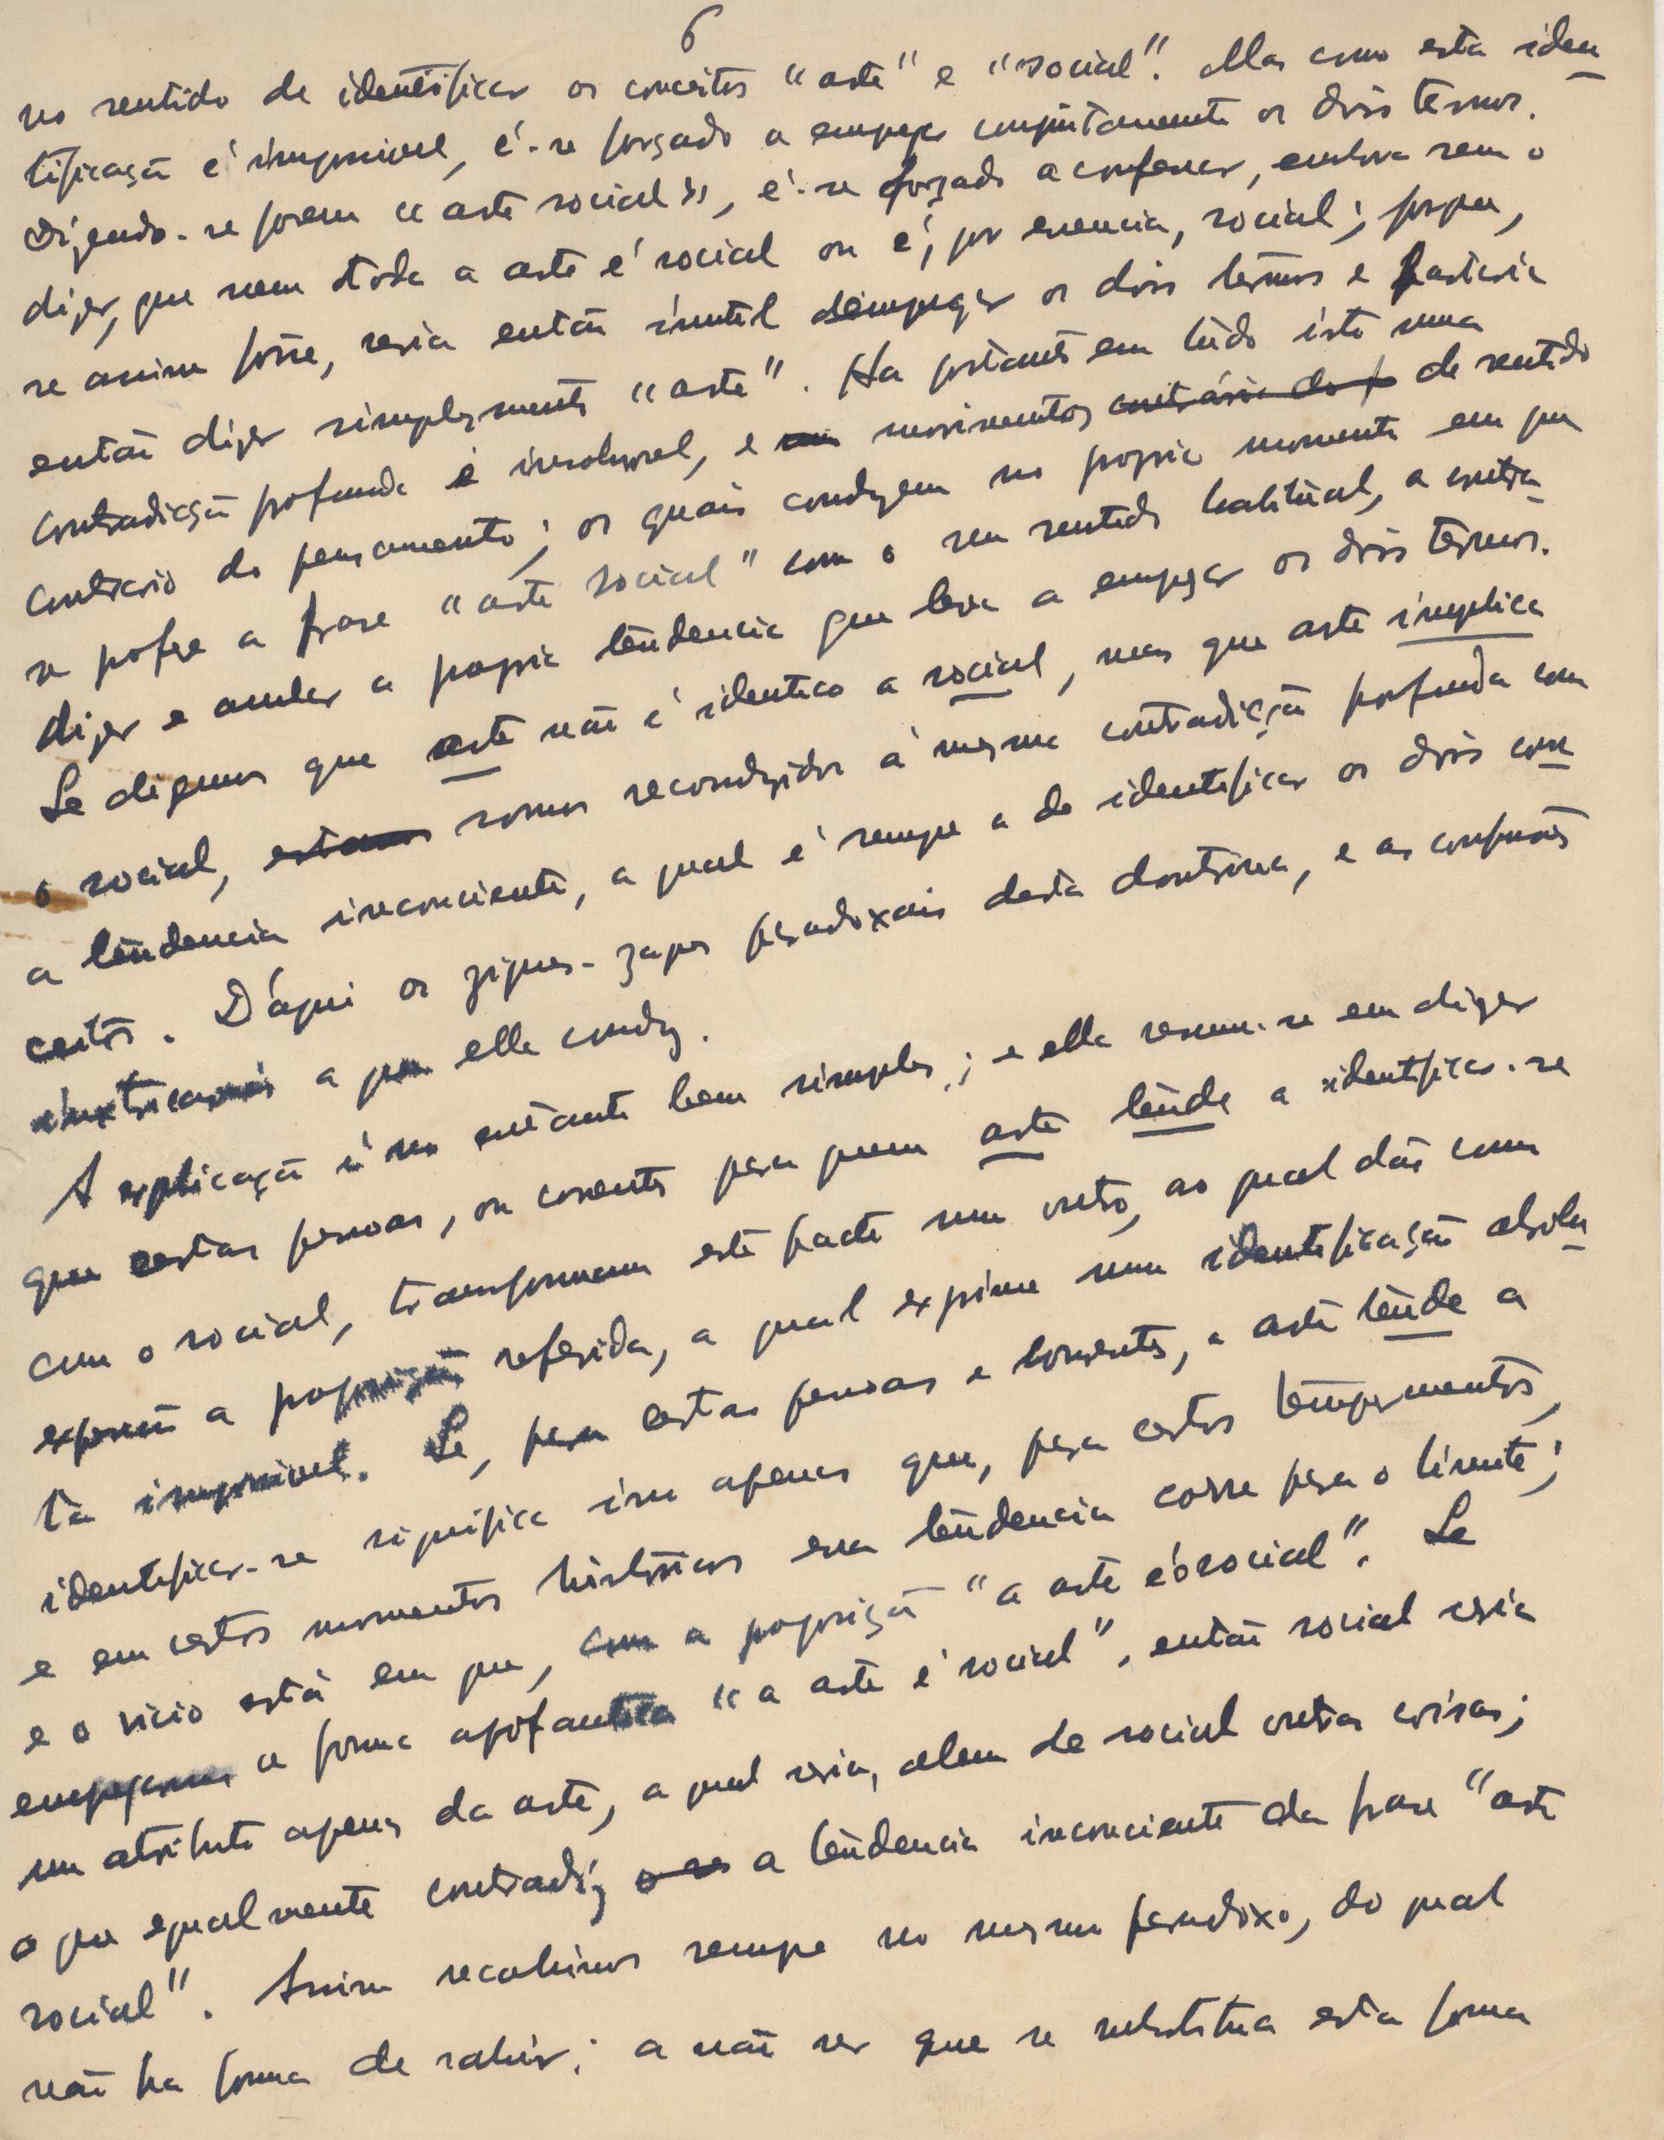 6
no sentido de identificar os conceitos "arte" e "social". Mas como esta iden
tificaçã é impossivel, é-se forçado a empregar conjuntamente os dois termos.
Dizendo-se porem "arte social", é-se forçado a confessar, embora sem o
dizer, que nem toda a arte é social ou é, por essencia, social; porque,
se assim fosse, seria então inutil empregar os dois termos e bastaria
então dizer simplesmente "arte". Ha portanto em tudo isto uma
contradicção profunda e insoluvel, e um movimentos contrário do p de sentido
contrario do pensamento; os quais conduzem no proprio momento em que
se profere a frase "arte social" com o seu sentido habitual, a contra
dizer e anular a propria tendencia que leva a empregar os dois termos.
Se dizemos que arte não é identico a social, mas que arte implica
o social, estamos somos reconduzidos à mesma contradicção profunda com
a tendencia inconciente, a qual é sempre a de identificar os dois con
ceitos. D'aqui os zigues-zagues paradoxais desta doutrina, e as confusões
inextricaveis a que ella conduz.
A explicação é no entanto bem simples; e ella resume-se em dizer
que certas pessoas, ou correntes para quem arte tende a identificar-se
com o social, transformam este facto num outro, ao qual dão como
expressão a proposição referida, a qual exprime uma identificação absolu
ta impossivel. Se, para certas pessoas e correntes, a arte tende a
identificar-se significa isso apenas que, para certos temperamentos,
e em certos momentos historicos essa tendencia corre para o limite;
e o vicio está em que, com a proposição "a arte é o social". Se
empregamos a forma apofantica "a arte é social", então social seria
um atributo apenas da arte, a qual seria, alem de social outras coisas;
o que egualmente contradiz a tendencia inconciente da frase "arte
social". Assim recahimos sempre no mesmo paradoxo, do qual
não ha forma de sahir; a não ser que se substitua esta forma